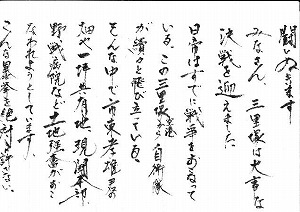 闘いぬきます
みなさん、三里塚は大事な
決戦を迎えました。
日常はすでに戦争をおおって
いる。この三里塚空港から自衛隊
が續々と飛び立っている。
そんな中で市東孝雄君の
畑や一坪共有地、現闘本部、
野戦病院など土地強奪がおこ
なわれようとしています。
こんな暴挙を絶対に許さない。